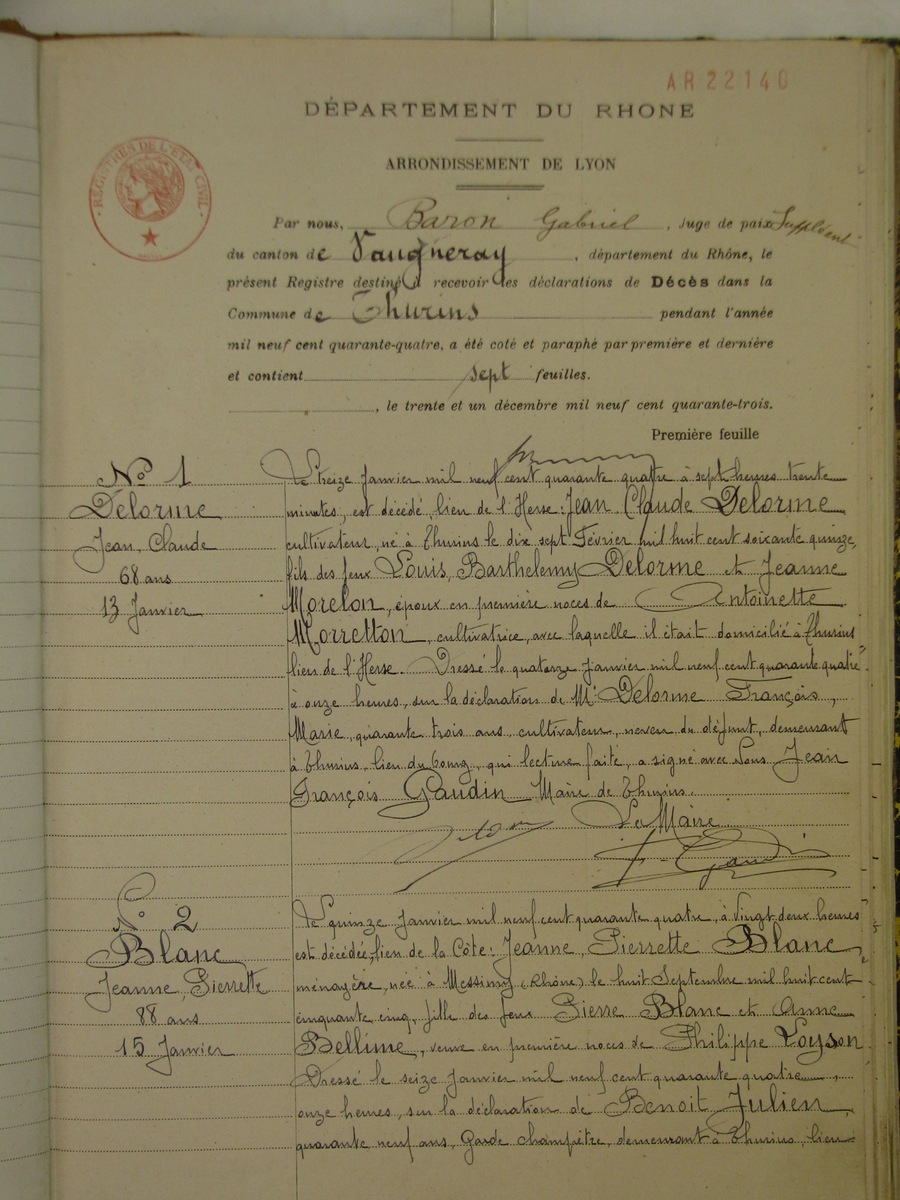 AR 22140
DÉPARTEMENT DU RHONE
REGISTRES DE L'ÉTAT CIVIL
ARRONDISSEMENT DE LYON
Par nous, Baron Gabriel, Juge de paix Suppléant
du canton de Vaugneray, département du Rhône, le
présent Registre destiné à recevoir les déclarations de Décès dans la
Commune de Thurins pendant l'année
mil neuf cent quarante-quatre, a été coté et paraphé par première et dernière
et contient sept feuilles.
, le trente et un décembre mil neuf cent quarante-trois.
Première feuille
No 1
Delorme
Jean, Claude
68 ans
13 Janvier
Le treize Janvier mil neuf cent quarante quatre à sept heures trente
minutes, est décédé, lieu de l'Herse: Jean Claude Delorme
cultivateur, né à Thurins le dix sept Février mil huit cent soixante quinze,
fils des feux Louis, Barthelemy Delorme et Jeanne
Morelon, époux en première noces de Antoinette
Morretton, cultivatrice, avec laquelle il était domicilié à Thurins
lieu de l'Herse. Dressé le quatorze Janvier mil neuf cent quarante quatre
à onze heures, sur la déclaration de Mr Delorme François,
Marie, quarante trois ans, cultivateur, neveu du défunt, demeurant
à Thurins, lieu du bourg, qui lecture faite, a signé avec Nous Jean
François Gaudin Maire de Thurins.
Le Maire
N° 2
Blanc
Jeanne, Pierrette
88 ans
15 Janvier
Le quinze Janvier mil neuf cent quarante quatre, à vingt deux heures
est décédée, lieu de la Côte: Jeanne, Pierrette Blanc
ménagère, née à Messimy (Rhône) le huit Septembre mil huit cent
cinquante cinq, fille des feux Pierre Blanc et Anne
Bellime, veuve en première noces de Philippe Loyson
Dressé le seize Janvier mil neuf cent quarante quatre,
onze heures, sur la déclaration de Benoit Julien
quarante neuf ans, Garde champêtre, demeurant à Thurins, lieu